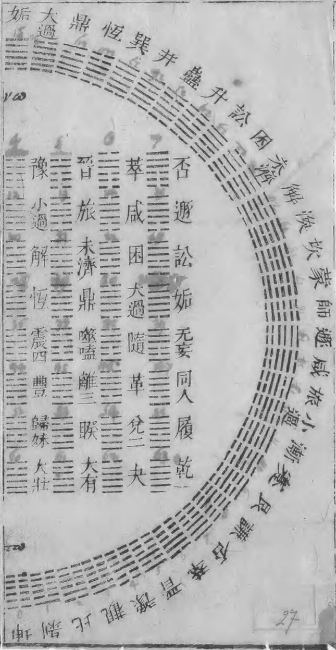 姤 大過 鼎 恆 巽 井 蠱 升 訟 困 未濟 解 渙 坎 蒙 師 遯 咸 旅 小過 漸 蹇 艮 謙 否 萃 晉 豫 觀 比 剝 坤
否 遯 訟 姤 无妄 同人 履 乾一
萃 咸 困 大過 隨 革 兌二 夬
晉 旅 未濟 鼎 噬嗑 離三 睽 大有
豫 小過 解 恆 震四 豐 歸妹 大壯
27